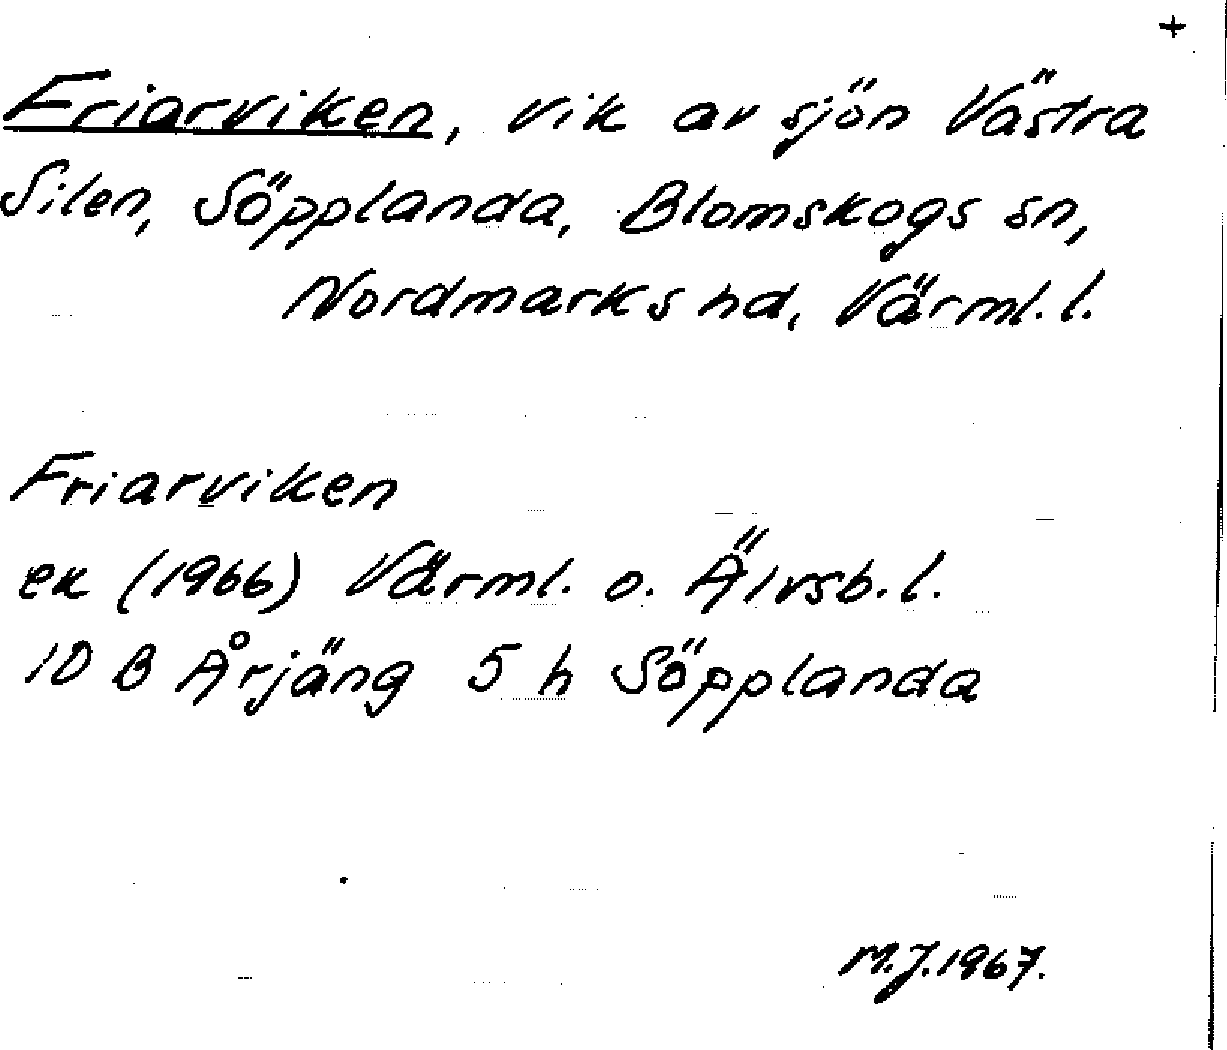 +
Friarviken, vik av sjön Västra
Silen, Söpplanda, Blomskogs sn,
Nordmarks hd, Värml. l.
Friarviken
ek (1966) Värml. o. Älvsb. l.
10 B Årjäng 5 h Söpplanda
M.J. 1967.